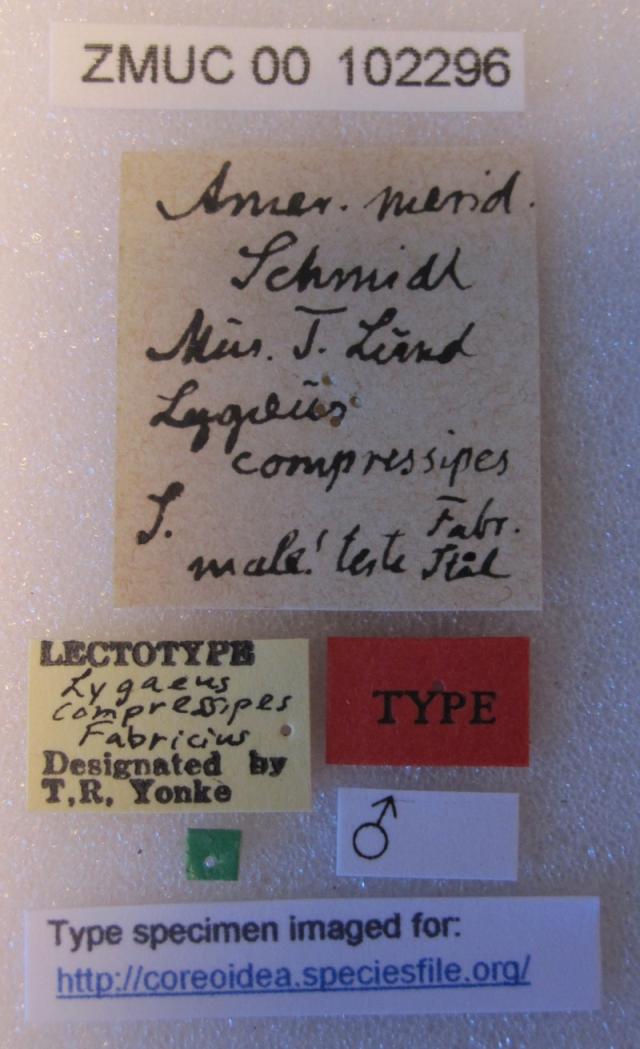 ZMUC 00 102296
Amer. merid.
Schmidt
Mus. T. Lund
Lygæus
compressipes
Fabr.
S.
male! teste Stål
LECTOTYPE
Lygaeus
compressipes
Fabricius
Designated by
T.R. Yonke
TYPE
♂
Type specimen imaged for:
http://coreoidea.speciesfile.org/